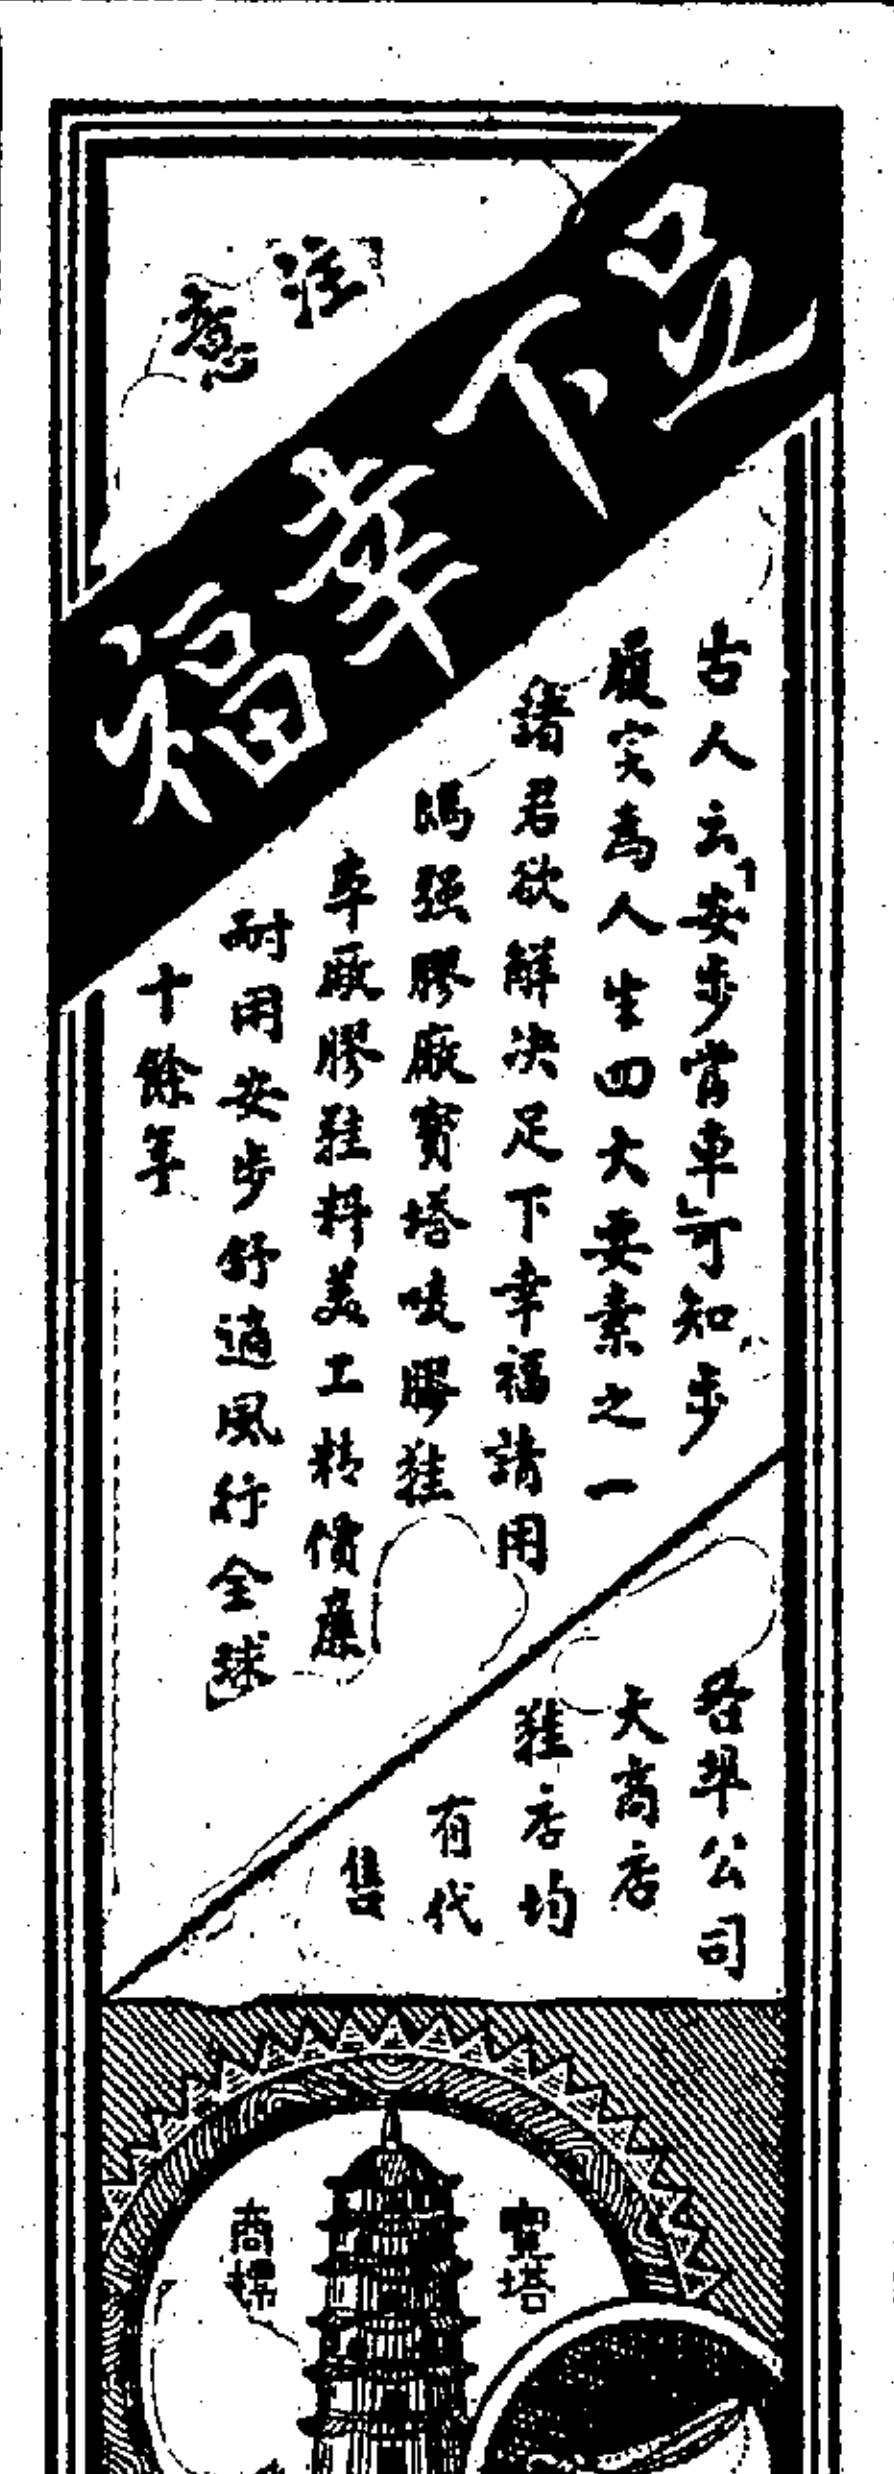 足下幸福
注意
古人云「安步當車」可知步
履实為人生四大要素之一
諸君欲解決足下幸福請用
馮强膠廠寶塔嘜膠鞋
本廠膠鞋料美工精價廉
耐用安步舒適風行全球
十餘年
各埠公司
大商店
鞋店均
有代
售
寶塔
商標